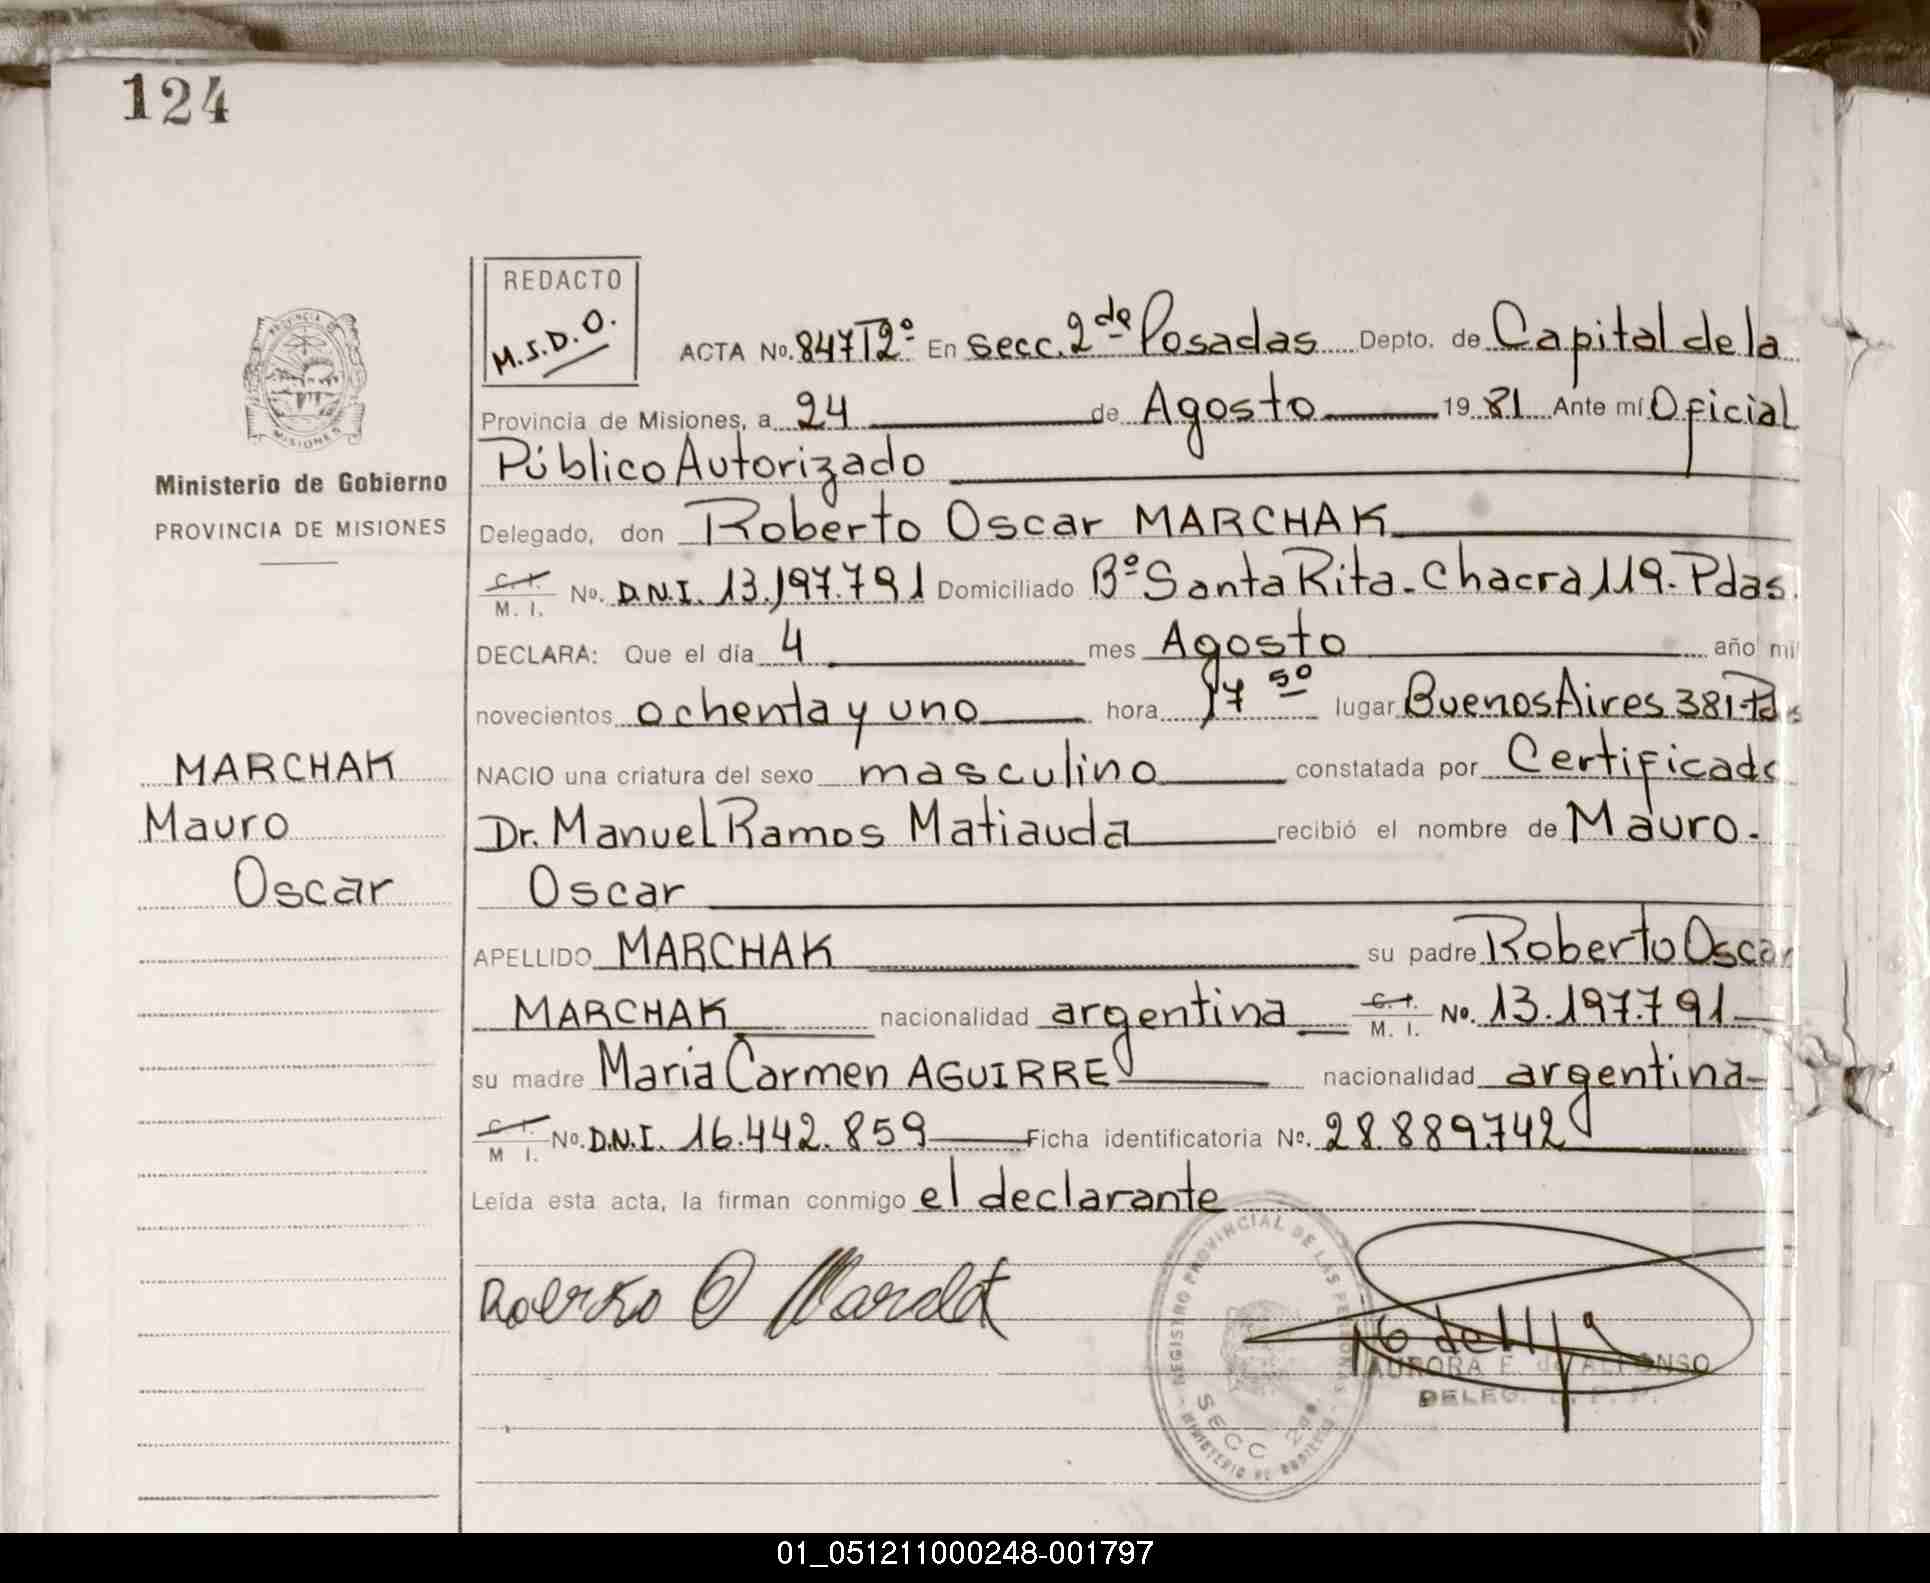 124
REDACTO
M.S.D.O.
ACTA No. 847T2º En secc. 2da Posadas Depto. de Capital de la
Provincia de Misiones, a 24 de Agosto 19 81 Ante mí Oficial
Público Autorizado
Delegado, don Roberto Oscar MARCHAK
C. I. M. I. No. D.N.I. 13.197.791 Domiciliado Bº Santa Rita - Chacra 119 - Pdas.
DECLARA: Que el día 4 mes Agosto año mil
novecientos ochenta y uno hora 17 50 lugar Buenos Aires 381-Pdas
NACIO una criatura del sexo masculino constatada por Certificado
Dr. Manuel Ramos Matiauda recibió el nombre de Mauro.
Oscar
APELLIDO MARCHAK su padre Roberto Oscar
MARCHAK nacionalidad argentina C. I. M. I. No. 13.197.791
su madre Maria Carmen AGUIRRE nacionalidad argentina
C. I. M I. No. D.N.I. 16.442.859 Ficha identificatoria No. 28.889.742
Leída esta acta, la firman conmigo el declarante
PROVINCIA DE MISIONES
Ministerio de Gobierno
PROVINCIA DE MISIONES
MARCHAK
Mauro
Oscar
REGISTRO PROVINCIAL DE LAS PERSONAS
SECC 2da.
MINISTERIO DE GOBIERNO
AURORA E. de ALFONSO
DELEG.
01_051211000248-001797